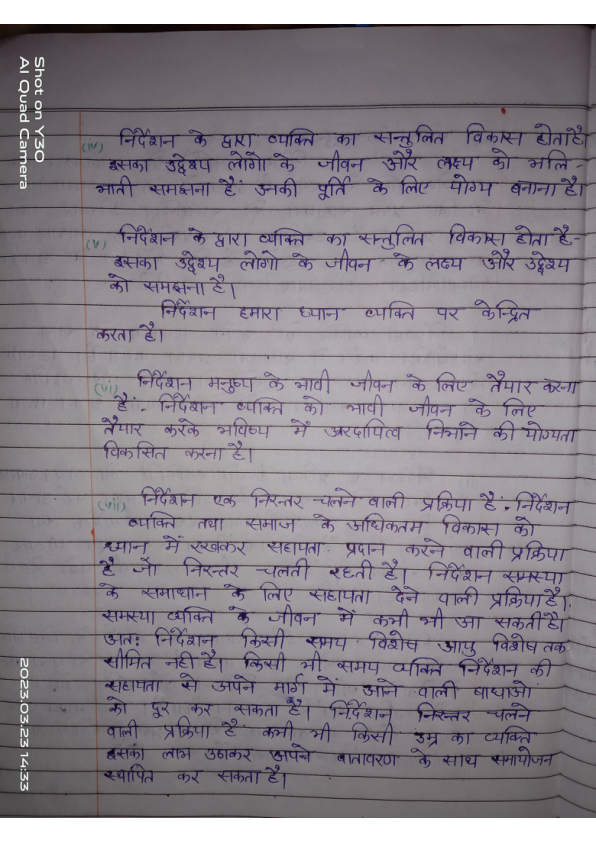 (iv) निर्देशन के द्वारा व्यक्ति का सन्तुलित विकास होता है।
इसका उद्देश्य लोगो के जीवन और लक्ष्य को भलि-
भाती समझना हैं उनकी पूर्ति के लिए योग्य बनाना है।
(v) निर्देशन के द्वारा व्यक्ति का सन्तुलित विकास होता है-
इसका उद्देश्य लोगो के जीवन के लक्ष्य और उद्देश्य
को समझना है।
निर्देशन हमारा ध्यान व्यक्ति पर केन्द्रित
करता है।
(vi) निर्देशन मनुष्य के भावी जीवन के लिए तैयार करना
हैं- निर्देशन व्यक्ति को भावी जीवन के लिए
तैयार करके भविष्य में निभाने की योग्यता
विकसित करना है।
(vii) निर्देशन एक निरन्तर चलने वाली प्रक्रिया हैं- निर्देशन
व्यक्ति तथा समाज के अधिकतम विकास को
ध्यान में रखकर सहायता प्रदान करने वाली प्रक्रिया
है जो निरन्तर चलती रहती है। निर्देशन समस्या
के समाधान के लिए सहायता देने वाली प्रक्रिया है।
समस्या व्यक्ति के जीवन में कभी भी आ सकती है।
अतः निर्देशन किसी समय विशेष आयु विशेष तक
सीमित नही है। किसी भी समय व्यक्ति निर्देशन की
सहायता से अपने मार्ग में आने वाली बाधाओं
को दूर कर सकता है। निर्देशन निरन्तर चलने
वाली प्रक्रिया हैं कभी भी किसी उम्र का व्यक्ति
इसका लाभ उठाकर अपने वातावरण के साथ समायोजन
स्थापित कर सकता है।
Shot on Y30
AI Quad Camera
2023.03.23 14:33